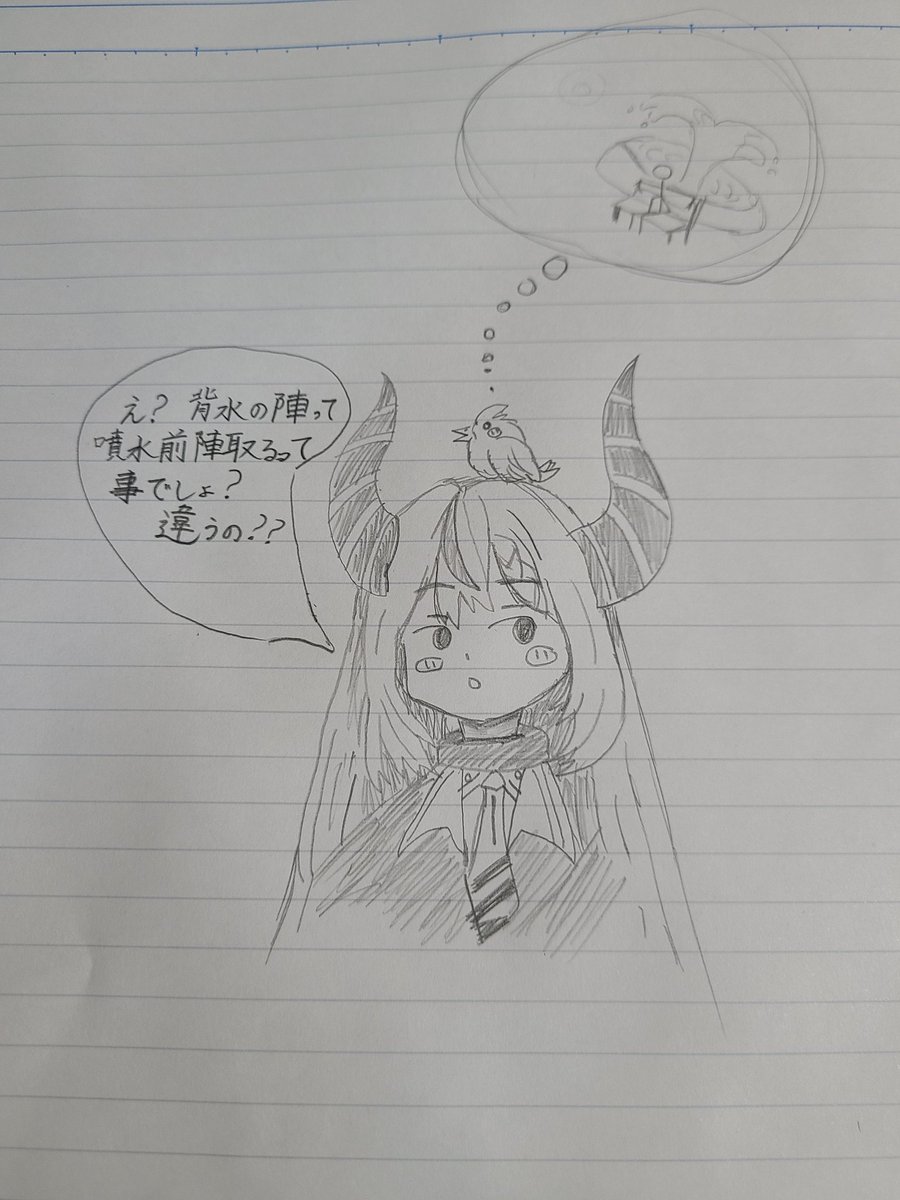 え? 背水の陣って
噴水前陣取るって
事でしょ?
違うの??